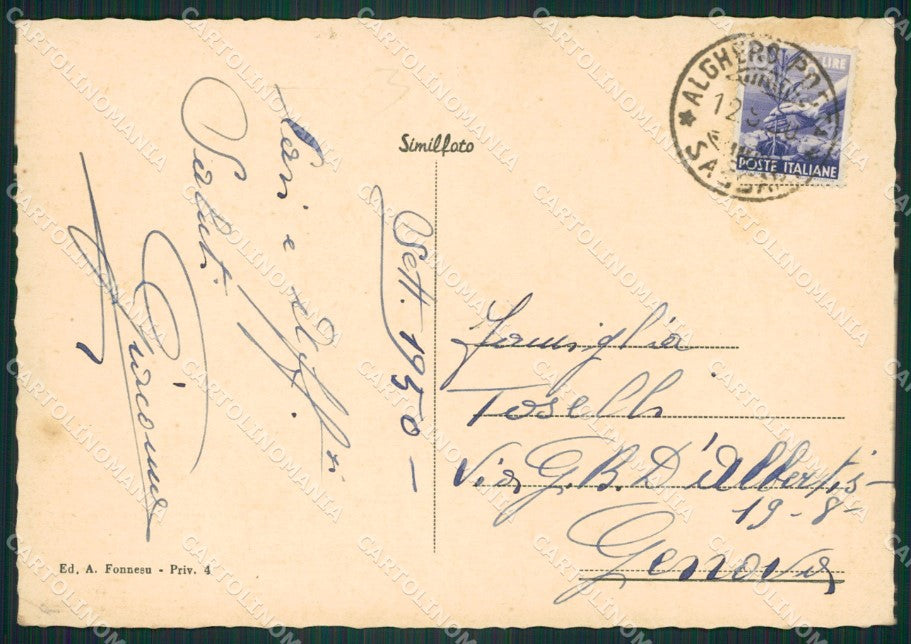 Similfoto
ALGHERO
12
LIRE
POSTE ITALIANE
Cari e
Saluti
Giacomo
Sett. 1950 -
Famiglia
Toselli
Via G.B. D'Albertis -
19-8
Genova
Ed. A. Fonnesu - Priv. 4
CARTOLINOMANIA